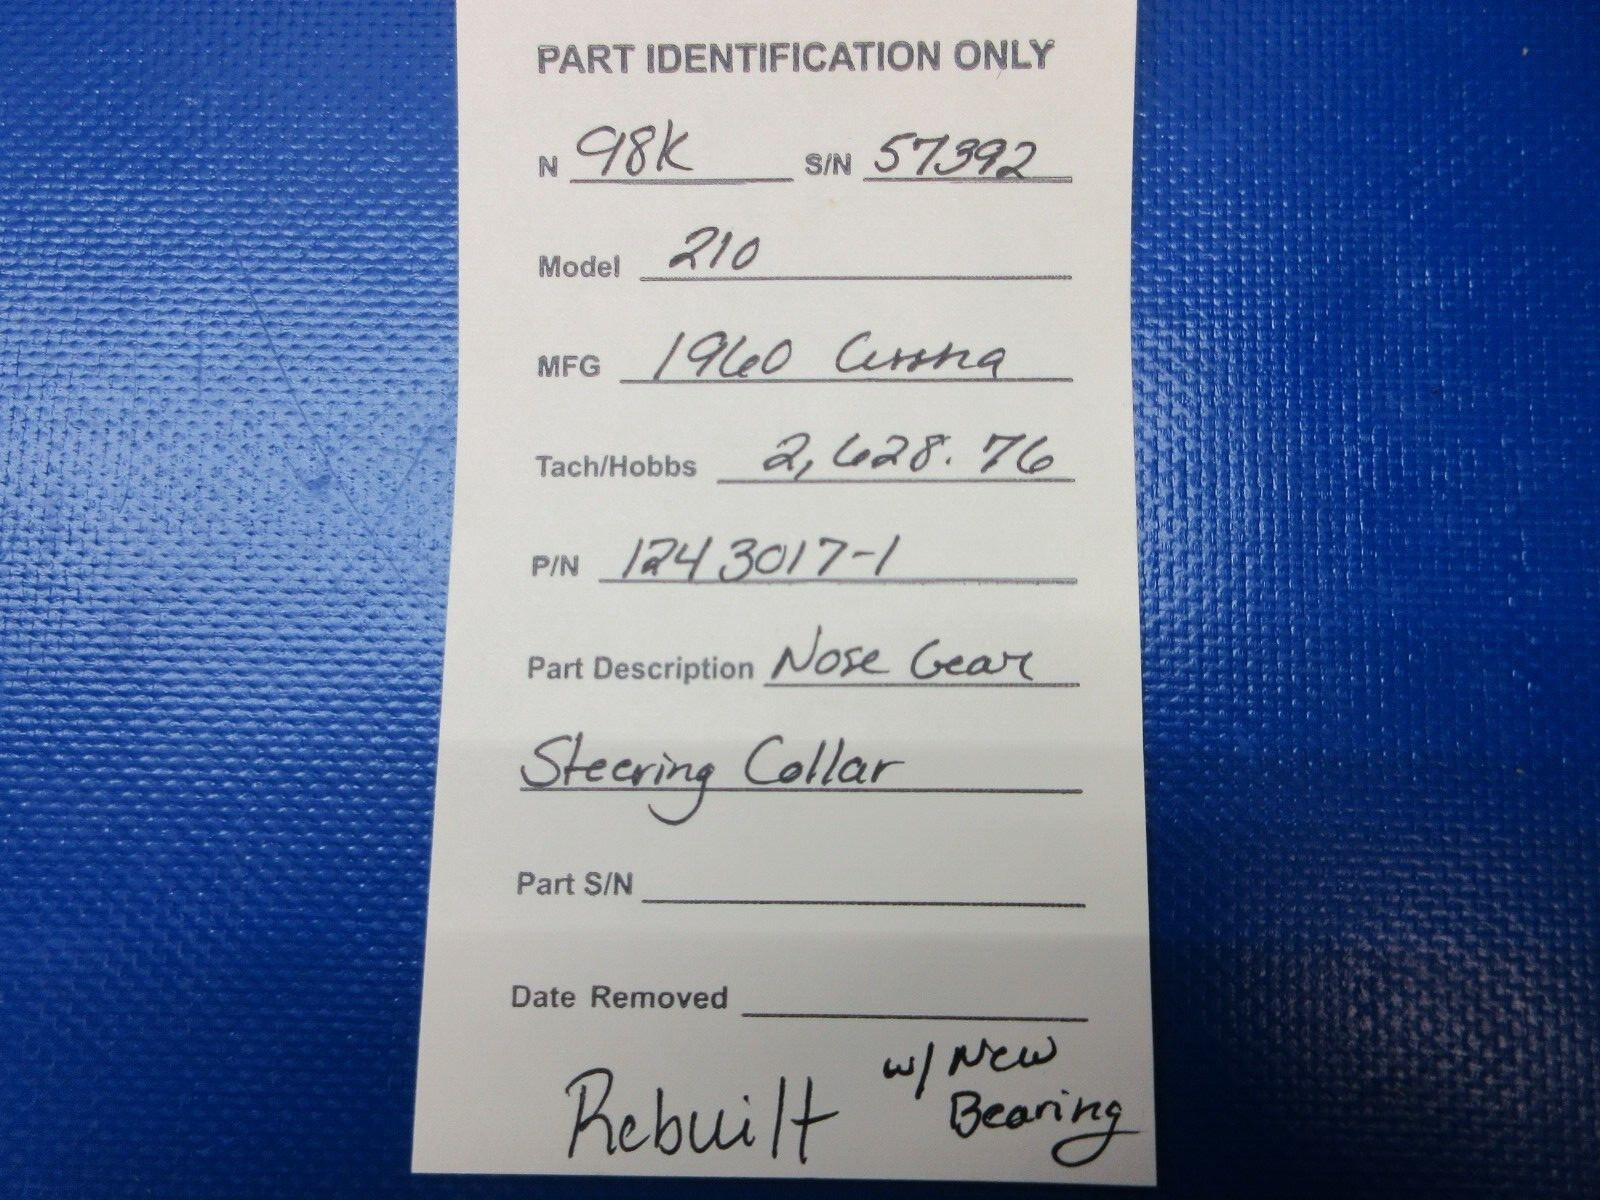 PART IDENTIFICATION ONLY
N 98K S/N 57392
Model 210
MFG 1960 Cessna
Tach/Hobbs 2,628.76
P/N 1243017-1
Part Description Nose Gear
Steering Collar
Part S/N
Date Removed
Rebuilt w/ New
Bearing